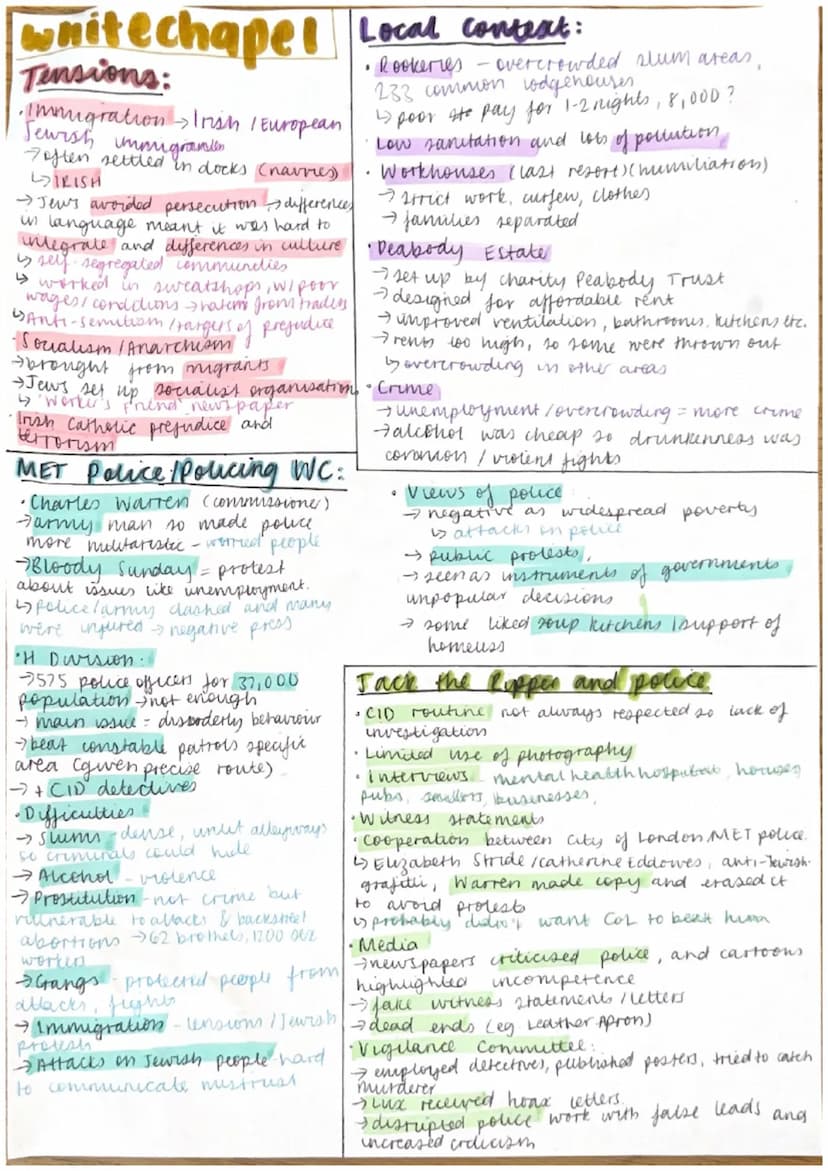 Whitechapel
Tensions:
· Immigration → Irish / European
Jewish immigrants
→ often settled in docks (navvies)
↳ IRISH
→ Jews avoided persecution → differences
in language meant it was hard to
integrate and differences in culture
↳ self-segregated communities
↳ worked in sweatshops, w/ poor
wages/conditions → hatred from traders
↳ Anti-semitism / targets of prejudice
· Socialism / Anarchism
→ brought from migrants
→ Jews set up socialist organisation
↳ 'Worker's Friend' newspaper
· Irish Catholic prejudice and
terrorism
Local Context:
· Rookeries - overcrowded slum areas,
233 common lodgehouses
↳ poor pay for 1-2 nights, 8,000?
· Low sanitation and lots of pollution
· Workhouses (last resort) (humiliation)
→ strict work, curfew, clothes
→ families separated
· Peabody Estate
→ set up by charity Peabody Trust
→ designed for affordable rent
→ improved ventilation, bathrooms, kitchens etc.
→ rents too high, so some were thrown out
↳ overcrowding in other areas
· Crime
→ unemployment/overcrowding = more crime
→ alcohol was cheap so drunkenness was
common / violent fights
MET Police/Policing WC:
· Charles Warren (commissioner)
→ army man so made police
more militaristic - worried people
→ Bloody Sunday = protest
about issues like unemployment.
↳ police/army clashed and many
were injured → negative press
· H Division:
→ 575 police officers for 37,000
population → not enough
→ main issue = disorderly behaviour
→ beat constable patrols specific
area (given precise route)
→ + CID detectives
· Difficulties
→ Slums - dense, unlit alleyways
so criminals could hide
→ Alcohol - violence
→ Prostitution - not crime but
vulnerable to attacks & backstreet
abortions → 62 brothels, 1200 sex
workers
→ Gangs - protected people from
attacks, fights
→ Immigration - tensions / Jewish
protests
→ Attacks on Jewish people - hard
to communicate mistrust
· Views of police
→ negative as widespread poverty
↳ attacks on police
→ public protests,
→ seen as instruments of governments
unpopular decisions
→ some liked soup kitchens / support of
homeless
Jack the Ripper and police
· CID routine not always respected so lack of
investigation
· Limited use of photography
· Interviews - mental health hospitals, houses,
pubs, businesses,
· Witness statements
· Cooperation between City of London, MET police.
↳ Elizabeth Stride / Catherine Eddowes, anti-Jewish
grafitti, Warren made copy and erased it
to avoid protests
↳ probably didn't want CoL to beat him
· Media
→ newspapers criticised police, and cartoons
highlighted incompetence
→ fake witness statements / letters
→ dead ends (eg Leather Apron)
· Vigilance Committee:
→ employed detectives, published posters, tried to catch
murderer
→ Lux received hoax letters.
→ disrupted police work with false leads and
increased criticism